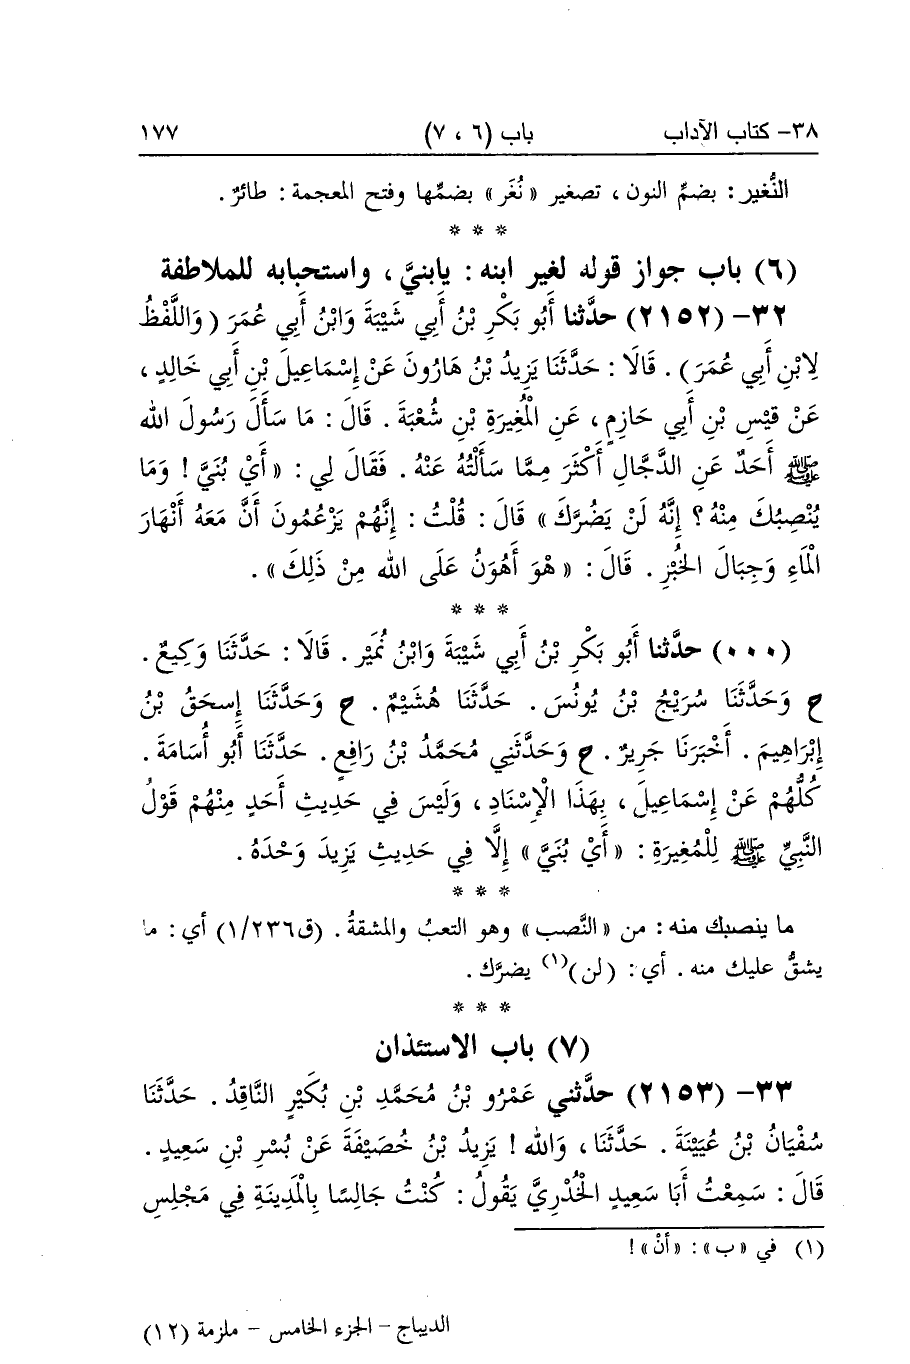 ٣٨- كتاب الآداب باب (٦ ، ٧) ١٧٧
النُّغير : بضمِّ النون ، تصغير « نُغَر » بضمِّها وفتح المعجمة : طائرٌ .
* * *
(٦) باب جواز قوله لغير ابنه : يابنيَّ ، واستحبابه للملاطفة
٣٢- (٢١٥٢) حدَّثنا أَبُو بَكْرِ بْنُ أَبِي شَيْبَةَ وَابْنُ أَبِي عُمَرَ ( وَاللَّفْظُ
لِابْنِ أَبِي عُمَرَ ) . قَالَا : حَدَّثَنَا يَزِيدُ بْنُ هَارُونَ عَنْ إِسْمَاعِيلَ بْنِ أَبِي خَالِدٍ ،
عَنْ قَيْسِ بْنِ أَبِي حَازِمٍ ، عَنِ الْمُغِيرَةِ بْنِ شُعْبَةَ . قَالَ : مَا سَأَلَ رَسُولَ الله
ﷺ أَحَدٌ عَنِ الدَّجَّالِ أَكْثَرَ مِمَّا سَأَلْتُهُ عَنْهُ . فَقَالَ لِي : « أَيْ بُنَيَّ ! وَمَا
يُنْصِبُكَ مِنْهُ ؟ إِنَّهُ لَنْ يَضُرَّكَ » قَالَ : قُلْتُ : إِنَّهُمْ يَزْعُمُونَ أَنَّ مَعَهُ أَنْهَارَ
الْمَاءِ وَجِبَالَ الخُبْزِ . قَالَ : « هُوَ أَهْوَنُ عَلَى الله مِنْ ذَلِكَ » .
* * *
(٠٠٠) حدَّثنا أَبُو بَكْرِ بْنُ أَبِي شَيْبَةَ وَابْنُ نُمَيْرٍ . قَالَا : حَدَّثَنَا وَكِيعٌ .
ح وَحَدَّثَنَا سُرَيْجُ بْنُ يُونُسَ . حَدَّثَنَا هُشَيْمٌ . ح وَحَدَّثَنَا إِسحَقُ بْنُ
إِبْرَاهِيمَ . أَخْبَرَنَا جَرِيرٌ . ح وَحَدَّثَنِي مُحَمَّدُ بْنُ رَافِعٍ . حَدَّثَنَا أَبُو أُسَامَةَ .
كُلُّهُمْ عَنْ إِسْمَاعِيلَ ، بِهَذَا الْإِسْنَادِ ، وَلَيْسَ فِي حَدِيثِ أَحَدٍ مِنْهُمْ قَوْلُ
النَّبِيِّ ﷺ لِلْمُغِيرَةِ : « أَيْ بُنَيَّ » إِلَّا فِي حَدِيثِ يَزِيدَ وَحْدَهُ .
* * *
ما ينصبك منه : من « النَّصب » وهو التعبُ والمشقةُ . (ق٢٣٦/١) أي : ما
يشقُّ عليك منه . أي : (لن)(١) يضرَّك .
* * *
(٧) باب الاستئذان
٣٣- (٢١٥٣) حدَّثني عَمْرُو بْنُ مُحَمَّدِ بْنِ بُكَيْرٍ النَّاقِدُ . حَدَّثَنَا
سُفْيَانُ بْنُ عُيَيْنَةَ . حَدَّثَنَا ، وَالله ! يَزِيدُ بْنُ خُصَيْفَةَ عَنْ بُسْرِ بْنِ سَعِيدٍ .
قَالَ : سَمِعْتُ أَبَا سَعِيدٍ الخُدْرِيَّ يَقُولُ : كُنْتُ جَالِسًا بِالْمَدِينَةِ فِي مَجْلِسِ
(١) في « ب » : « أنْ » !
الديباج - الجزء الخامس - ملزمة (١٢)